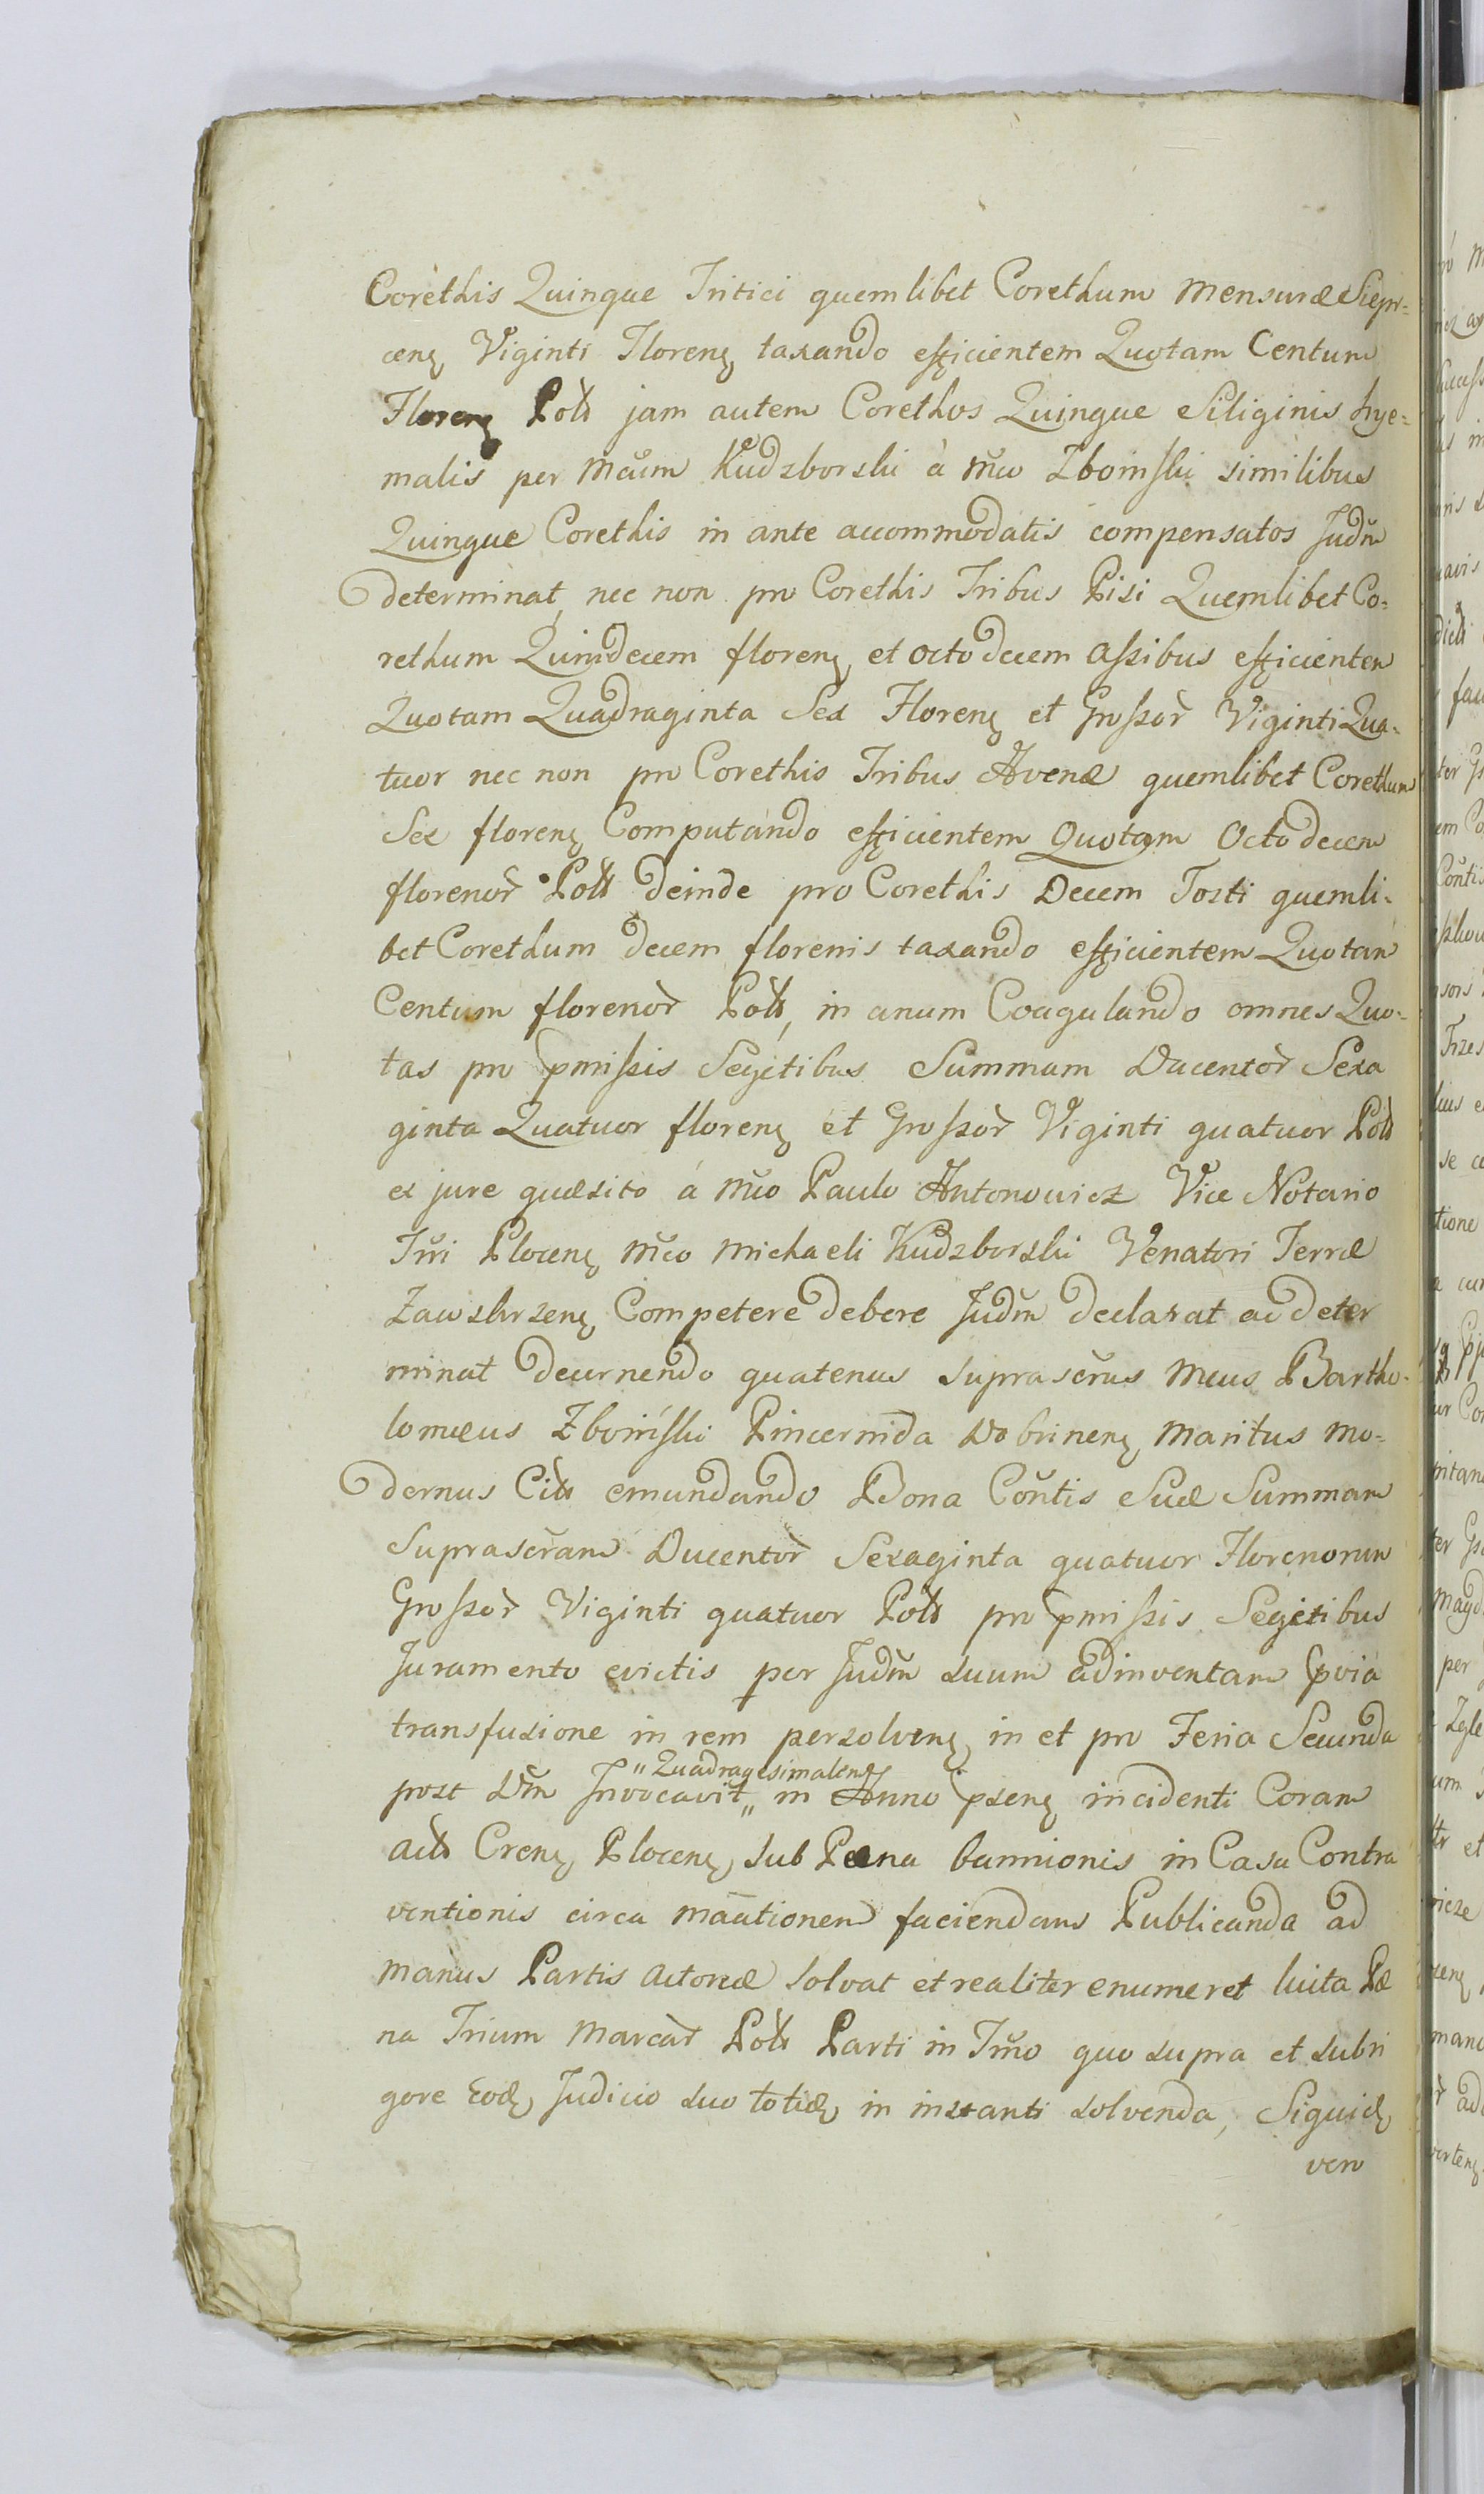 Corethis Quinque Tritici quemlibet Corethum Mensuræ Siepr=
cenȩ Viginti Florenȩ taxando efficientem Quotam Centum
Florenȩ Polł jam autem Corethos Quinque Siliginis hye=
malis per Mcũm Kudzborski à Mco Zboinski similibus
Quinque Corethis in ante accommodatis compensatos Judm̃
determinat, nec non pro Corethis Tribus Pisi Quemlibet Co=
rethum Quindecem florenȩ et octodecem assibus efficientem
Quotam Quadraginta Sex Florenȩ et Grossor̃ Viginti Qua=
tuor nec non pro Corethis Tribus Avenæ quemlibet Corethum
Sex florenȩ Computando efficientem Quotam Octodecem
florenor̃ Polł deinde pro Corethis Decem Tosti quemli=
bet Corethum decem florenis taxando efficientem Quotam
Centum florenor̃ Polł, in unum Coagulando omnes Quo=
tas pro pmissis Segetibus Summam Ducentor̃ Sexa
ginta Quatuor florenȩ et Grossor̃ Viginti quatuor Polł
ex jure quæsito á Mco Paulo Antonowicz Vice Notario
Trri Plocenȩ Mco Michaeli Kudzborski Venatori Terræ
Zawskrzenȩ Competere debere Judm̃ declarat ac deter
minat decernendo quatenus suprascrus Mcus Bartho=
lomæus Zboiński Pincernida Dobrinenȩ Maritus mo=
dernus Citł emundando Bona Coñtis Suæ Summam
Suprascram Ducentor̃ Sexaginta quatuor Florenorum
Grossor̃ Viginti quatuor Polł pro pmissis Segetibus
Juramento evictis per Judm̃ suum adinventam pvia
transfusione in rem persolvenȩ in et pro Feria Secunda
"Quadragesimalem
post Dm̃ Invocavit" in Anno psenȩ incidenti Coram
Actł Crenȩ Plocenȩ, sub Pæna bannionis in Casu Contra
ventionis circa mãationem faciendam Publicanda ad
manus Partis Actoreæ solvat et realiter enumeret luita Pæ
na Trium Marcar̃ Polł Parti in Trmo quo supra et sub ri
gore eodȩ Judicio suo totidȩ in instanti solvenda, Siquidȩ
vero